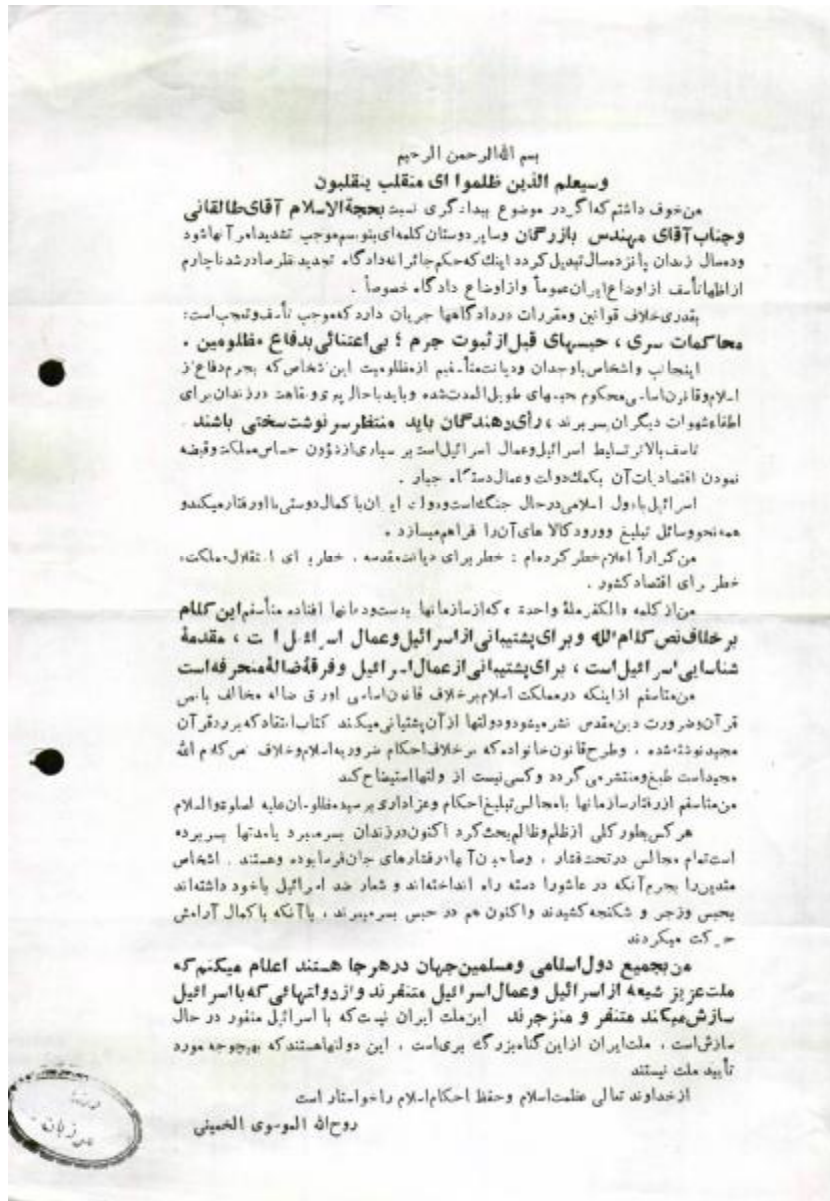 بسم الله الرحمن الرحیم
وسیعلم الذین ظلموا ای منقلب ینقلبون
من خوف داشتم که اگر در موضوع بیدادگری نسبت بحجة الاسلام آقای طالقانی
وجناب آقای مهندس بازرگان وسایر دوستان کلمه‌ای بنویسم موجب تشدید امر آنها شود
وده سال زندان پانزده سال تبدیل گردد اینك که حکم جائرانه دادگاه تجدید نظر صادر شد ناچارم
از اظهار تأسف از اوضاع ایران عموماً واز اوضاع دادگاه خصوصاً .
بقدری خلاف قوانین ومقررات در دادگاهها جریان دارد که موجب تأسف وتعجب است:
محاکمات سری ، حبسهای قبل از ثبوت جرم ؛ بی اعتنائی بدفاع مظلومین .
اینجانب واشخاص باوجدان ودیانت متأسفیم از مظلومیت این اشخاص که بجرم دفاع از
اسلام وقانون اساسی محکوم حبسهای طویل المدت شده وباید باحال پیری ونقاهت در زندان برای
اطفاء شهوات دیگران بسر برند ، رأی دهندگان باید منتظر سرنوشت سختی باشند .
تاسف بالاتر تسلیط اسرائیل وعمال اسرائیل است بر بسیاری از شؤون حساس مملکت وقبضه
نمودن اقتصادیات آن بکمك دولت وعمال دستگاه جبار .
اسرائیل بادول اسلامی در حال جنگ است ودولت ایران با کمال دوستی با او رفتار میکند و
همه نحو وسائل تبلیغ وورود کالا های آن را فراهم میسازد .
من کراراً اعلام خطر کرده‌ام : خطر برای دیانت مقدسه ، خطر برای استقلال مملکت ،
خطر برای اقتصاد کشور .
من از کلمه «الکفر ملة واحدة» که از سازمانها بدست ودهانها افتاده متأسفم این کلام
بر خلاف نص کلام الله وبرای پشتیبانی از اسرائیل وعمال اسرائیل است ، مقدمهٔ
شناسایی اسرائیل است ، برای پشتیبانی از عمال اسرائیل وفرقهٔ ضالهٔ منحرفه است
من متاسفم از اینکه در مملکت اسلام بر خلاف قانون اساسی اوراق ضاله مخالف بانص
قرآن وضرورت دین مقدس نشر میشود ودولتها از آن پشتیبانی میکند کتاب انتقاد که بر رد قرآن
مجید نوشته شده ، وطرح قانون خانواده که بر خلاف احکام ضروریه اسلام وخلاف نص کلام الله
مجید است طبع ومنتشر می گردد وکسی نیست از دولتها استیضاح کند
من متاسفم از رفتار سازمانها بامجالس تبلیغ احکام وعزاداری بر سید مظلومان علیه الصلوة والسلام
هر کس بطور کلی از ظلم وظالم بحث کرد اکنون در زندان بسر میبرد یا مدتها بسر برده
است تمام مجالس در تحت فشار ، وصاحبان آنها در فشارهای جان فرسا بوده وهستند . اشخاص
متدین را بجرم آنکه در عاشورا دسته راه انداخته‌اند و شعار ضد اسرائیل باخود داشته‌اند
بحبس وزجر و شکنجه کشیدند واکنون هم در حبس بسر میبرند ، باآنکه باکمال آرامش
حرکت میکردند
من بجمیع دول اسلامی ومسلمین جهان در هر جا هستند اعلام میکنم که
ملت عزیز شیعه از اسرائیل وعمال اسرائیل متنفرند واز دولتهائی که با اسرائیل
سازش میکند متنفر و منزجرند این ملت ایران نیست که با اسرائیل منفور در حال
سازش است ، ملت ایران از این گناه بزرگ بری است ، این دولتها هستند که بهیچوجه مورد
تأیید ملت نیستند
از خداوند تعالی عظمت اسلام وحفظ احکام اسلام را خواستار است
روح الله الموسوی الخمینی
مرزبان